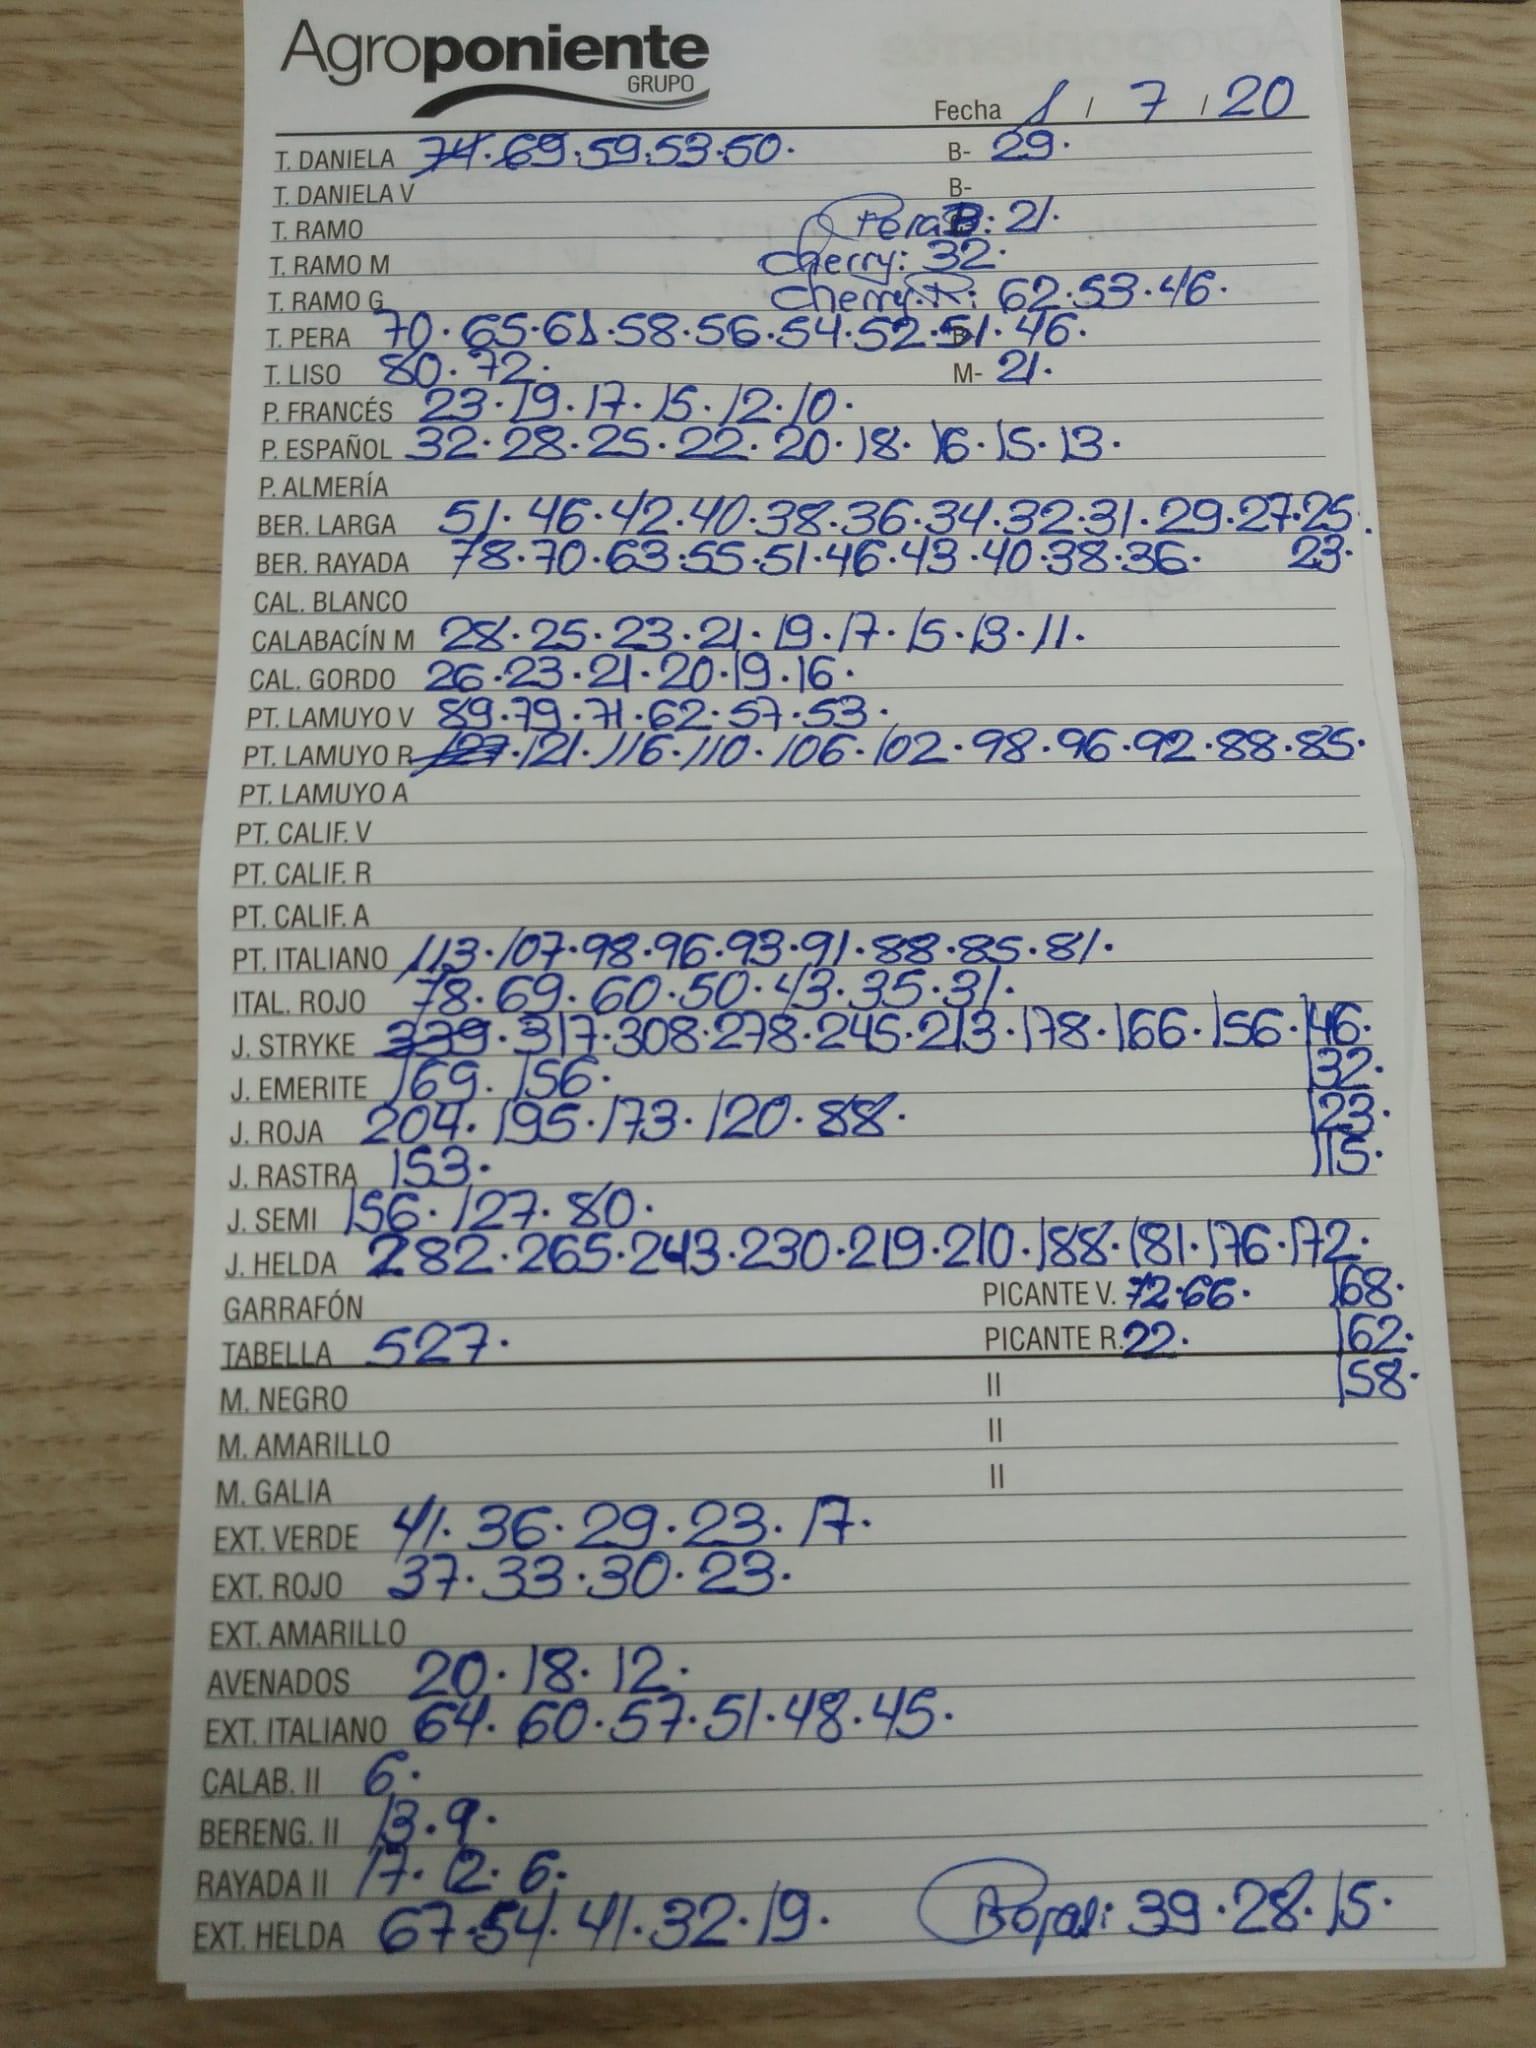 Agroponiente
GRUPO
Fecha 1 / 7 / 20
T. DANIELA 74. 69. 59. 53. 50. B- 29.
T. DANIELA V B-
T. RAMO Pera B: 21.
T. RAMO M Cherry: 32.
T. RAMO G Cherry.R: 62. 53. 46.
T. PERA 70. 65. 61. 58. 56. 54. 52. 51. 46.
T. LISO 80. 72. M- 21.
P. FRANCÉS 23. 19. 17. 15. 12. 10.
P. ESPAÑOL 32. 28. 25. 22. 20. 18. 16. 15. 13.
P. ALMERÍA
BER. LARGA 51. 46. 42. 40. 38. 36. 34. 32. 31. 29. 27. 25.
BER. RAYADA 78. 70. 63. 55. 51. 46. 43. 40. 38. 36. 23.
CAL. BLANCO
CALABACÍN M 28. 25. 23. 21. 19. 17. 15. 13. 11.
CAL. GORDO 26. 23. 21. 20. 19. 16.
PT. LAMUYO V 89. 79. 71. 62. 57. 53.
PT. LAMUYO R 127. 121. 116. 110. 106. 102. 98. 96. 92. 88. 85.
PT. LAMUYO A
PT. CALIF. V
PT. CALIF. R
PT. CALIF. A
PT. ITALIANO 113. 107. 98. 96. 93. 91. 88. 85. 81.
ITAL. ROJO 78. 69. 60. 50. 43. 35. 31.
J. STRYKE 339. 317. 308. 278. 245. 213. 178. 166. 156. 146.
J. EMERITE 169. 156. 132.
J. ROJA 204. 195. 173. 120. 88. 123.
J. RASTRA 153. 115.
J. SEMI 156. 127. 80.
J. HELDA 282. 265. 243. 230. 219. 210. 188. 181. 176. 172.
GARRAFÓN PICANTE V. 72. 66. 168.
TABELLA 527. PICANTE R. 22. 162.
M. NEGRO II 158.
M. AMARILLO II
M. GALIA II
EXT. VERDE 41. 36. 29. 23. 17.
EXT. ROJO 37. 33. 30. 23.
EXT. AMARILLO
AVENADOS 20. 18. 12.
EXT. ITALIANO 64. 60. 57. 51. 48. 45.
CALAB. II 6.
BERENG. II 13. 9.
RAYADA II 17. 12. 6.
EXT. HELDA 67. 54. 41. 32. 19. 39. 28. 15.